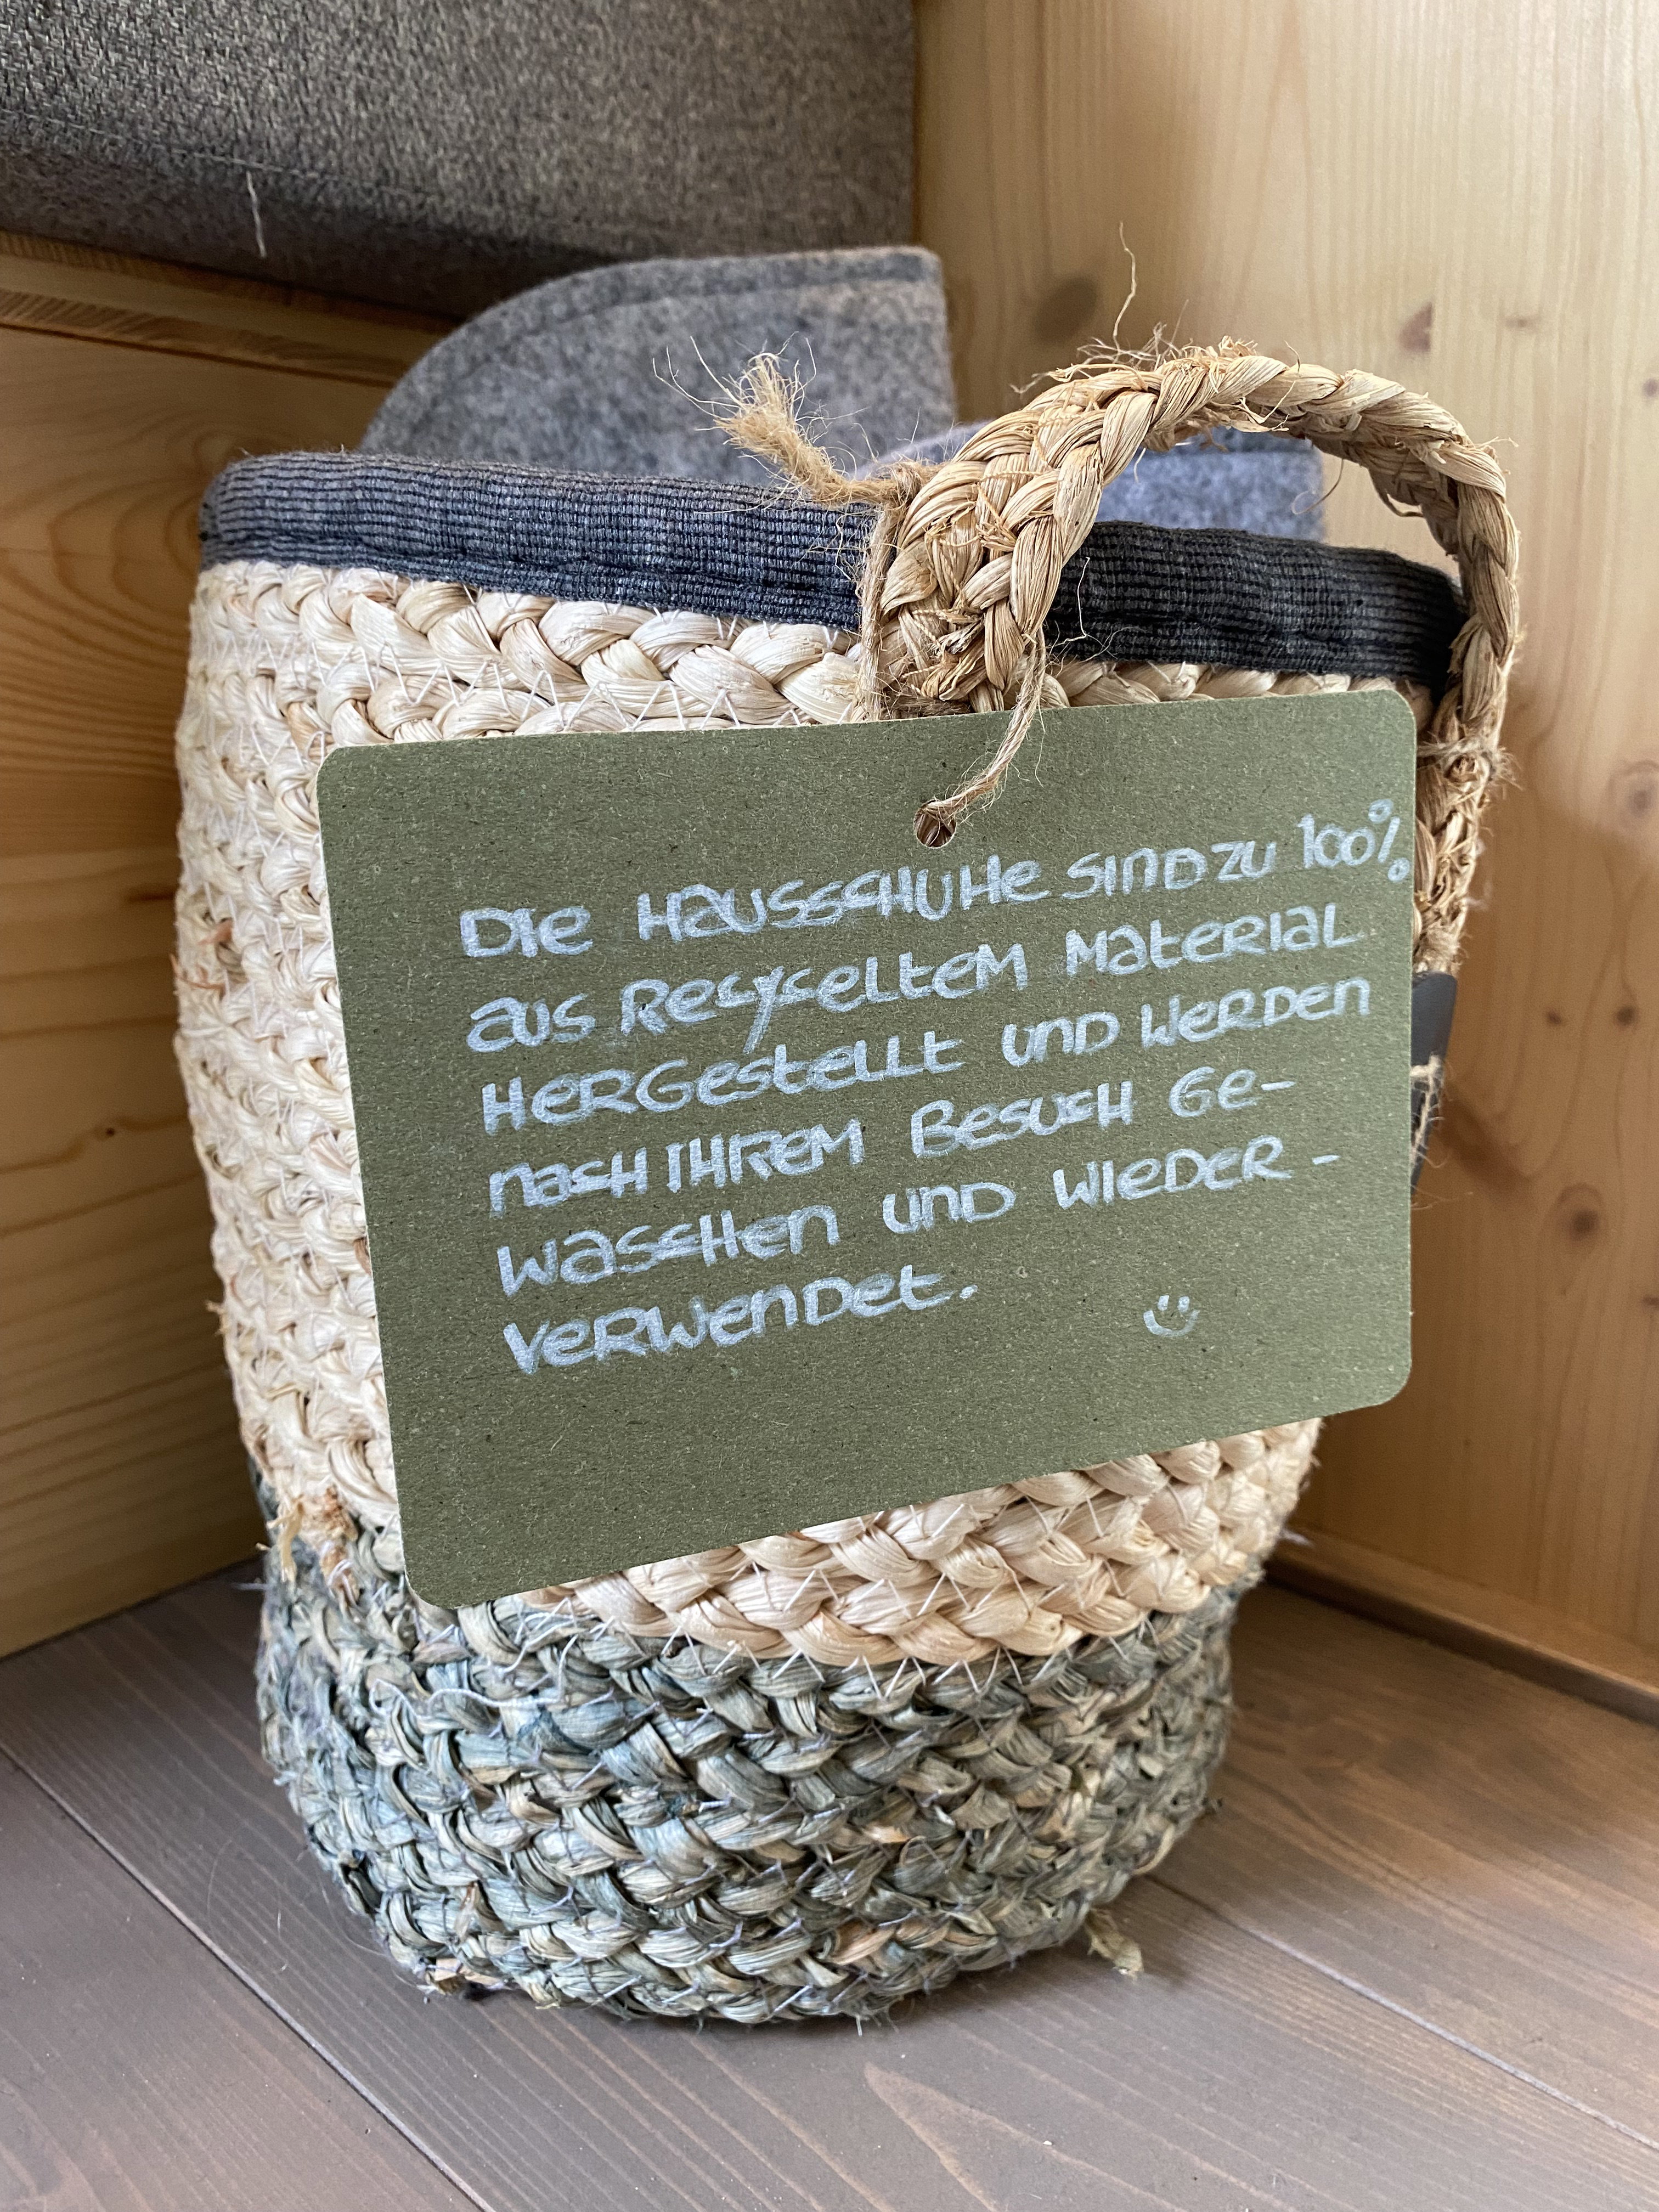 Die Hausschuhe sind zu 100%
aus recyceltem Material
hergestellt und werden
nach Ihrem Besuch ge-
waschen und wieder-
verwendet.